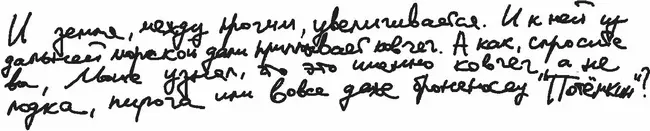 И земля, между прочим, увеличивается. И к ней из
дальней морской дали приплывает ковчег. А как, спросите
вы, Мыше узнал, что это именно ковчег, а не
лодка, пирога или вовсе даже броненосец "Потёмкин"?